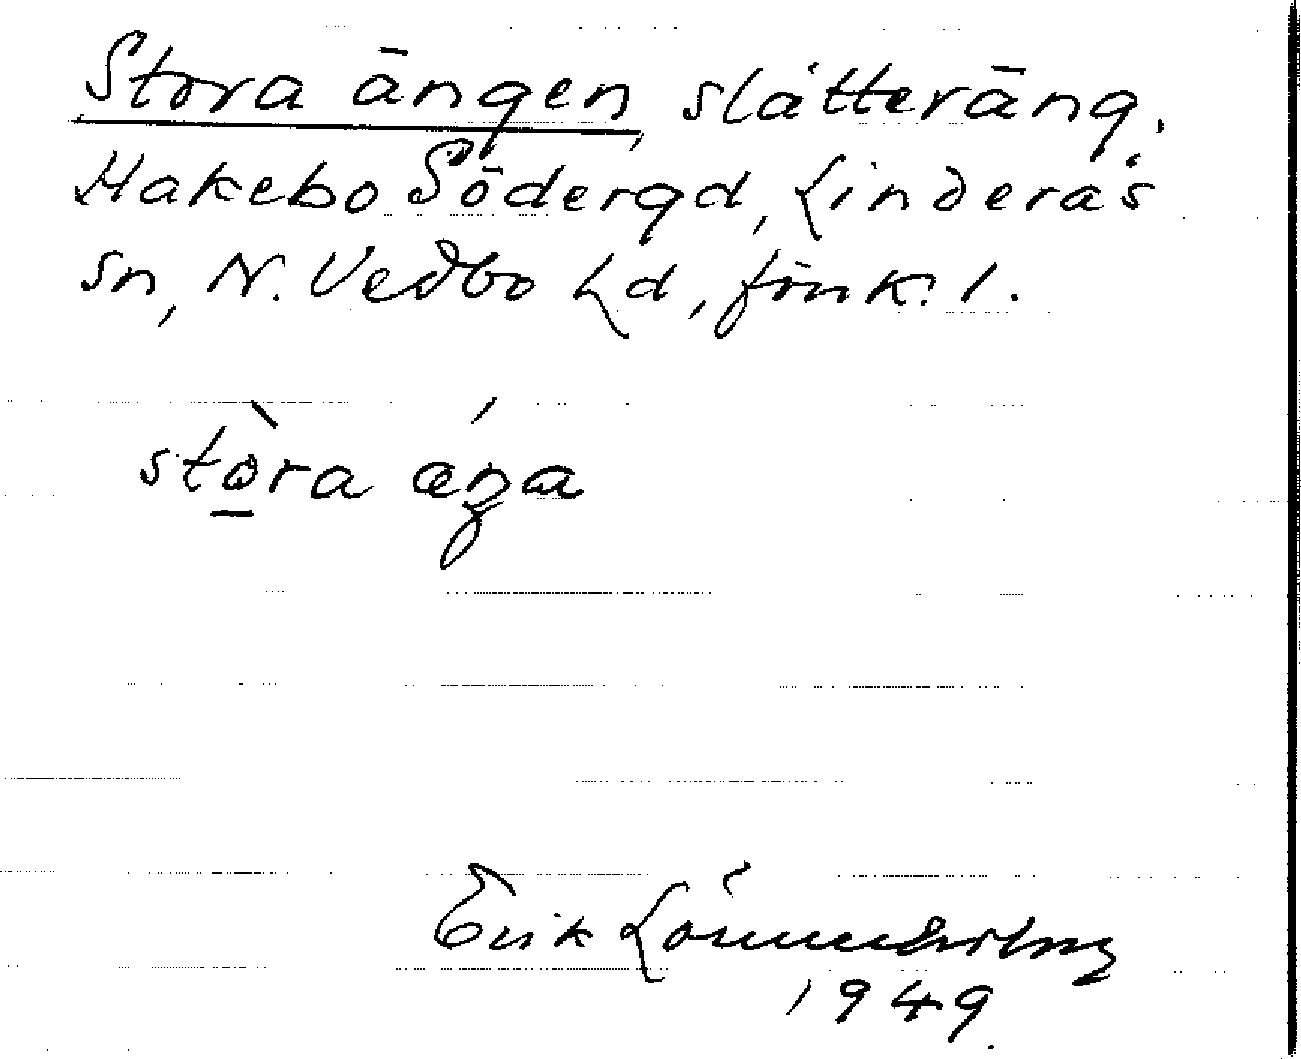 Stora ängen, slåtteräng.
Hakebo Södergd, Linderås
sn, N. Vedbo hd, Jönk. l.
stò̠ra ǽŋa
Erik
1949.